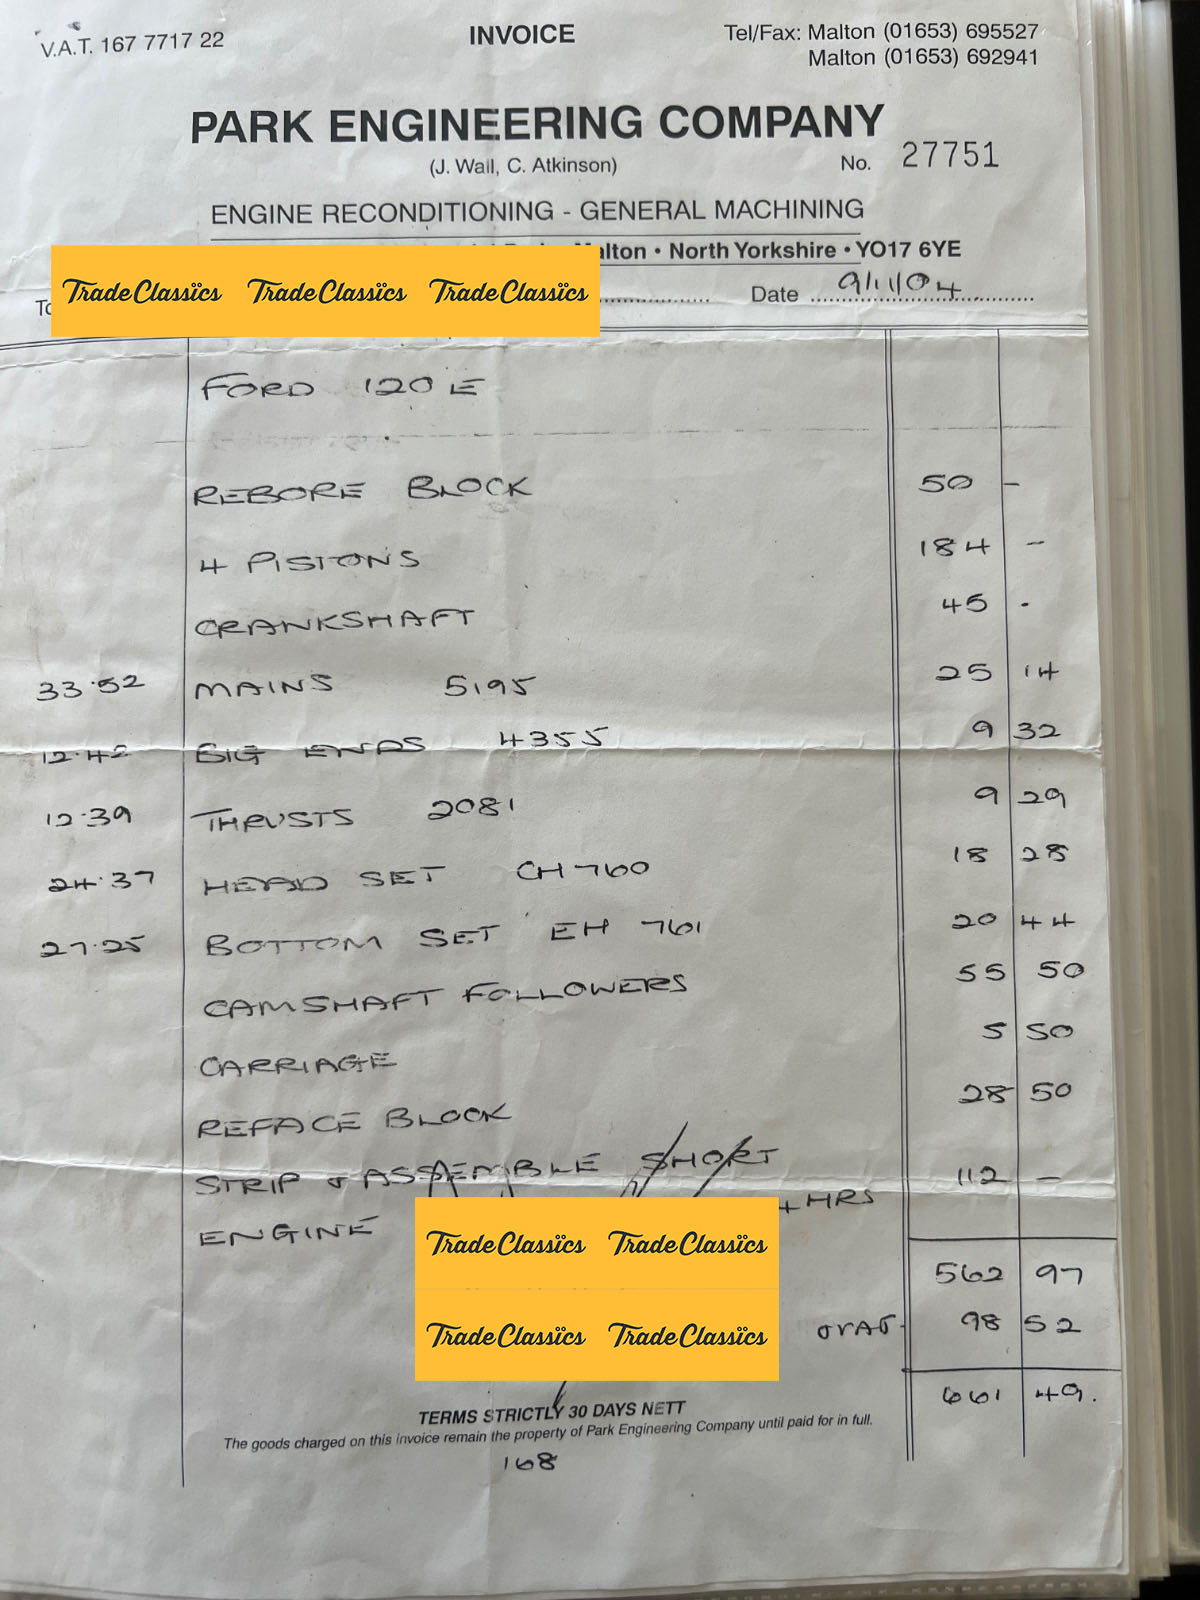 V.A.T. 167 7717 22 INVOICE Tel/Fax: Malton (01653) 695527
Malton (01653) 692941
PARK ENGINEERING COMPANY
(J. Wall, C. Atkinson) No. 27751
ENGINE RECONDITIONING - GENERAL MACHINING
alton • North Yorkshire • YO17 6YE
TradeClassics TradeClassics TradeClassics
To Date 9/11/04
FORD 120E
REBORE BLOCK 50 -
4 PISTONS 184 -
CRANKSHAFT 45 .
33.52 MAINS 5195 25 14
12.42 BIG ENDS 4355 9 32
12.39 THRUSTS 2081 9 29
24.37 HEAD SET CH760 18 28
27.25 BOTTOM SET EH 761 20 44
CAMSHAFT FOLLOWERS 55 50
CARRIAGE 5 50
REFACE BLOCK 28 50
STRIP & ASSEMBLE SHORT 112 -
ENGINE HRS
TradeClassics TradeClassics
562 97
TradeClassics TradeClassics
VAT 98 52
661 49.
TERMS STRICTLY 30 DAYS NETT
The goods charged on this invoice remain the property of Park Engineering Company until paid for in full.
168